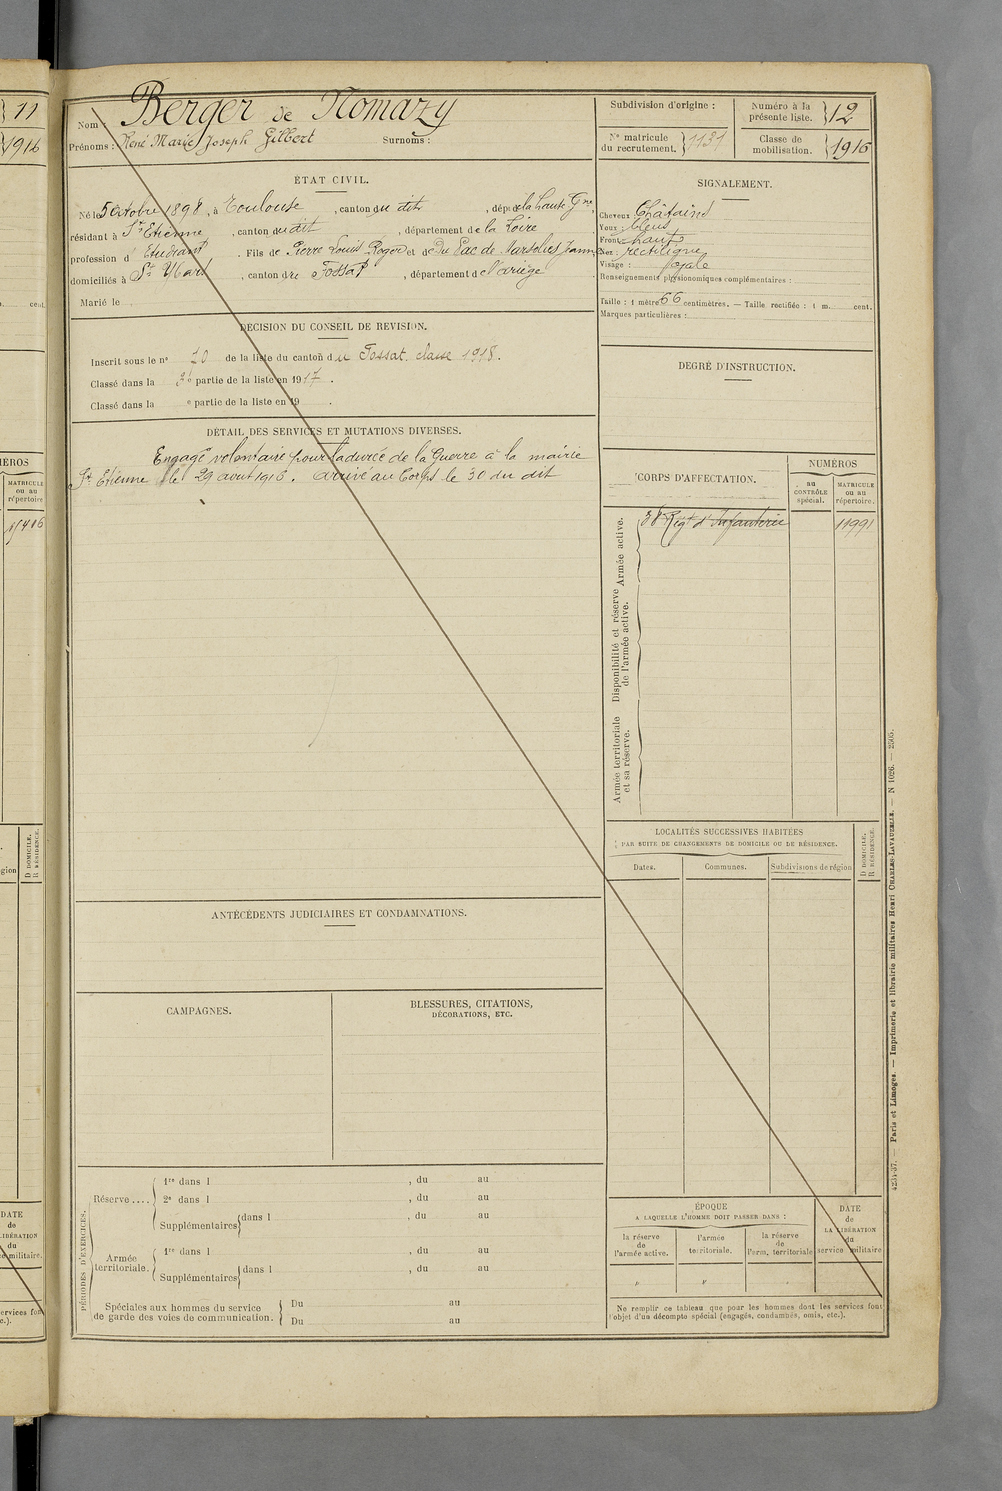 11
1916
cent.
MÉROS
MATRICULE
ou au
répertoire
D DOMICILE.
R RÉSIDENCE.
gion
DATE
de
LIBÉRATION
du
militaire.
ervices font
c.).
Nom : Berger de Nomazy
Prénoms : René Marie Joseph Gilbert Surnoms :
Subdivision d'origine :
N° matricule
du recrutement. 1131
Numéro à la
présente liste. 12
Classe de
mobilisation. 1916
ÉTAT CIVIL.
Né le 5 Octobre 1898, à Toulouse, canton du dit, dépt de la Haute Gne,
résidant à St Etienne, canton du dit, département de la Loire
profession d'Etudiant. Fils de Pierre Louis Roger et de Du Pac de Marsolies Jeanne
domiciliés à St, canton de Fossat, département de l'ariège.
Marié le
SIGNALEMENT.
Cheveux Châtains
Yeux : bleus
Front : haut
Nez : rectiligne
Visage : ovale
Renseignements physionomiques complémentaires :
Taille : 1 mètre 66 centimètres. — Taille rectifiée : 1 m. cent.
Marques particulières :
DÉCISION DU CONSEIL DE REVISION.
Inscrit sous le n° 20 de la liste du canton du Fossat. classe 1918.
Classé dans la partie de la liste en 1917.
Classé dans la e partie de la liste en 19 .
DEGRÉ D'INSTRUCTION.
DÉTAIL DES SERVICES ET MUTATIONS DIVERSES.
Engagé volontaire pour la durée de la Guerre à la mairie
St Etienne le 29 aout 1916. arrivé au Corps le 30 du dit
CORPS D'AFFECTATION.
NUMÉROS
au
CONTRÔLE
spécial.
MATRICULE
ou au
répertoire.
Armée active.
38 Régt d'Infanterie 11991
Disponibilité et réserve
de l'armée active.
Armée territoriale
et sa réserve.
LOCALITÉS SUCCESSIVES HABITÉES
PAR SUITE DE CHANGEMENTS DE DOMICILE OU DE RÉSIDENCE.
Dates. Communes. Subdivisions de région
D DOMICILE.
R RÉSIDENCE.
ANTÉCÉDENTS JUDICIAIRES ET CONDAMNATIONS.
CAMPAGNES.
BLESSURES, CITATIONS,
DÉCORATIONS, ETC.
PÉRIODES D'EXERCICES.
Réserve....
1re dans l , du au
2e dans l , du au
Supplémentaires dans l , du au
Armée
territoriale.
1re dans l , du au
Supplémentaires dans l , du au
Spéciales aux hommes du service
de garde des voies de communication.
Du au
Du au
ÉPOQUE
A LAQUELLE L'HOMME DOIT PASSER DANS :
la réserve
de
l'armée active.
l'armée
territoriale.
la réserve
de
l'arm. territoriale
DATE
de
LA LIBÉRATION
du
service militaire
Ne remplir ce tableau que pour les hommes dont les services font
l'objet d'un décompte spécial (engagés, condamnés, omis, etc.).
4234-37. — Paris et Limoges. — Imprimerie et librairie militaires Henri CHARLES-LAVAUZELLE. — N 1026. — 2505.